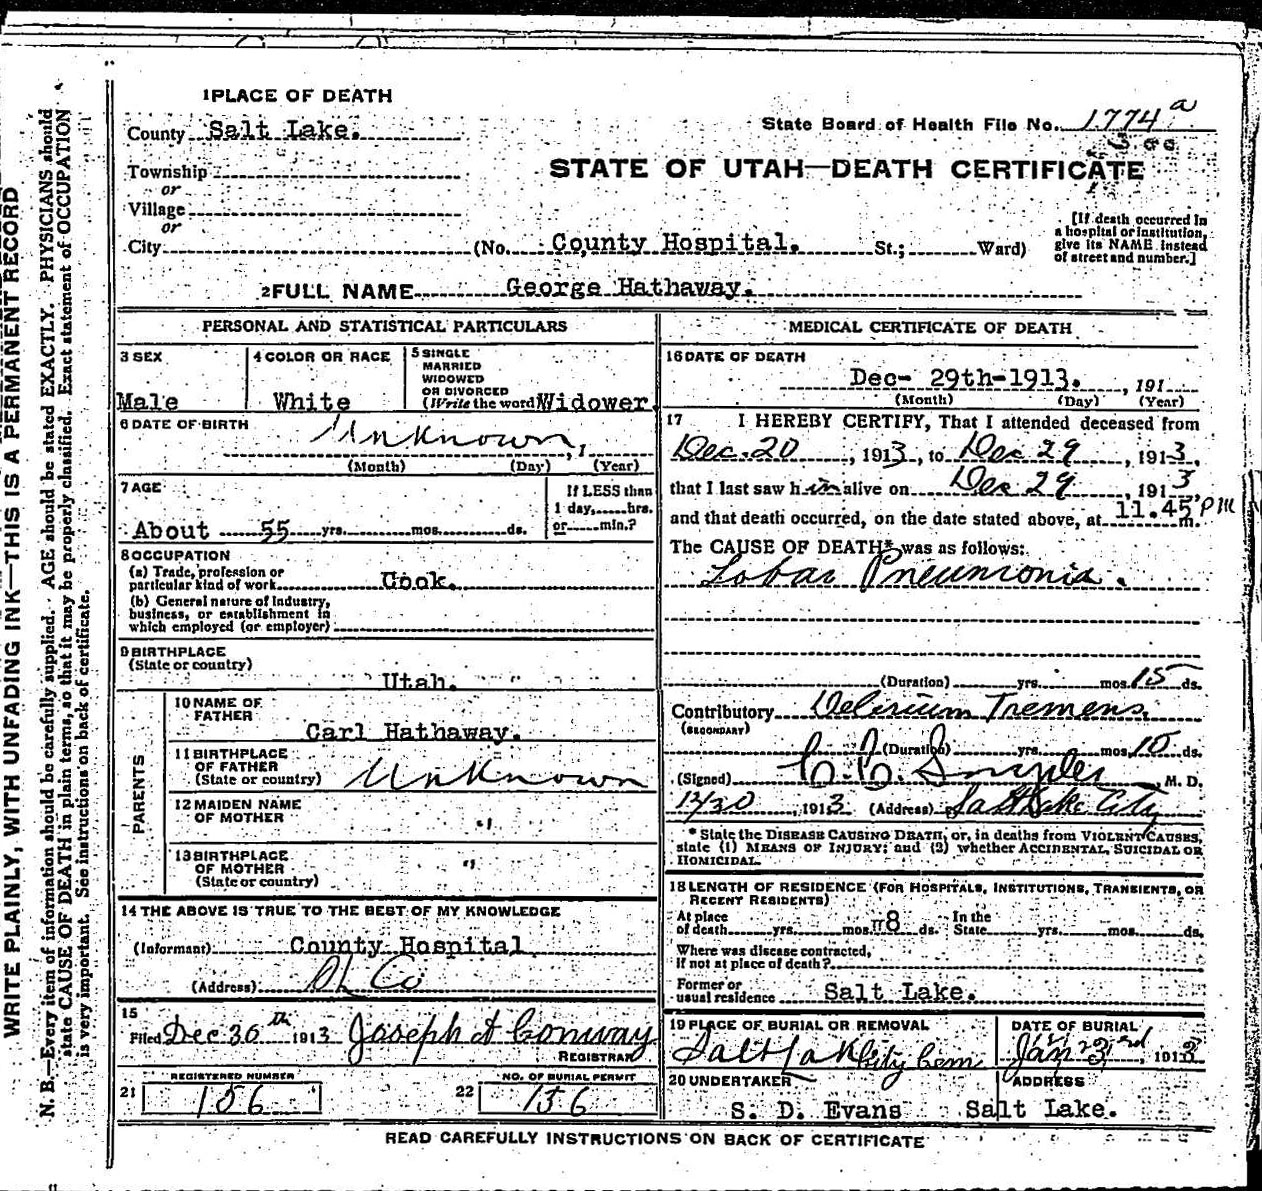 1 PLACE OF DEATH
County Salt Lake.
State Board of Health File No. 1774 a
STATE OF UTAH—DEATH CERTIFICATE
Township
or
Village
or
City (No. County Hospital. St.; Ward)
[If death occurred in
a hospital or institution,
give its NAME instead
of street and number.]
2 FULL NAME George Hathaway.
PERSONAL AND STATISTICAL PARTICULARS
3 SEX
Male
4 COLOR OR RACE
White
5 SINGLE
MARRIED
WIDOWED
OR DIVORCED
(Write the word) Widower.
6 DATE OF BIRTH
Unknown, 1
(Month) (Day) (Year)
7 AGE
About 55 yrs. mos. ds.
If LESS than
1 day, hrs.
or min.?
8 OCCUPATION
(a) Trade, profession or
particular kind of work Cook.
(b) General nature of industry,
business, or establishment in
which employed (or employer)
9 BIRTHPLACE
(State or country)
Utah.
PARENTS
10 NAME OF
FATHER
Carl Hathaway.
11 BIRTHPLACE
OF FATHER
(State or country) Unknown
12 MAIDEN NAME
OF MOTHER "
13 BIRTHPLACE
OF MOTHER "
(State or country)
14 THE ABOVE IS TRUE TO THE BEST OF MY KNOWLEDGE
(Informant) County Hospital
(Address) SL Co
15
Filed Dec 30th 1913 Joseph A Conway
REGISTRAR
REGISTERED NUMBER
21 156
NO. OF BURIAL PERMIT
22 156
MEDICAL CERTIFICATE OF DEATH
16 DATE OF DEATH
Dec- 29th-1913. , 191
(Month) (Day) (Year)
17 I HEREBY CERTIFY, That I attended deceased from
Dec. 20 , 1913, to Dec 29 , 1913,
that I last saw him alive on Dec 29 , 1913,
and that death occurred, on the date stated above, at 11.45 PM m.
The CAUSE OF DEATH* was as follows:
Lobar Pneumonia.
(Duration) yrs. mos. 15 ds.
Contributory Delirium Tremens
(SECONDARY)
(Duration) yrs. mos. 10 ds.
(Signed) C. C. Snyder M. D.
12/30 , 1913 (Address) Salt Lake City
* State the DISEASE CAUSING DEATH, or, in deaths from VIOLENT CAUSES,
state (1) MEANS OF INJURY; and (2) whether ACCIDENTAL, SUICIDAL OR
HOMICIDAL.
18 LENGTH OF RESIDENCE (FOR HOSPITALS, INSTITUTIONS, TRANSIENTS, OR
RECENT RESIDENTS)
At place
of death yrs. mos. 8 ds. In the
State yrs. mos. ds.
Where was disease contracted,
if not at place of death?
Former or
usual residence Salt Lake.
19 PLACE OF BURIAL OR REMOVAL
Salt Lak City Cem
DATE OF BURIAL
Jan 23rd, 1913
20 UNDERTAKER
S. D. Evans
ADDRESS
Salt Lake.
READ CAREFULLY INSTRUCTIONS ON BACK OF CERTIFICATE
WRITE PLAINLY, WITH UNFADING INK—THIS IS A PERMANENT RECORD
N. B.—Every item of information should be carefully supplied. AGE should be stated EXACTLY. PHYSICIANS should
state CAUSE OF DEATH in plain terms, so that it may be properly classified. Exact statement of OCCUPATION
is very important. See instructions on back of certificate.